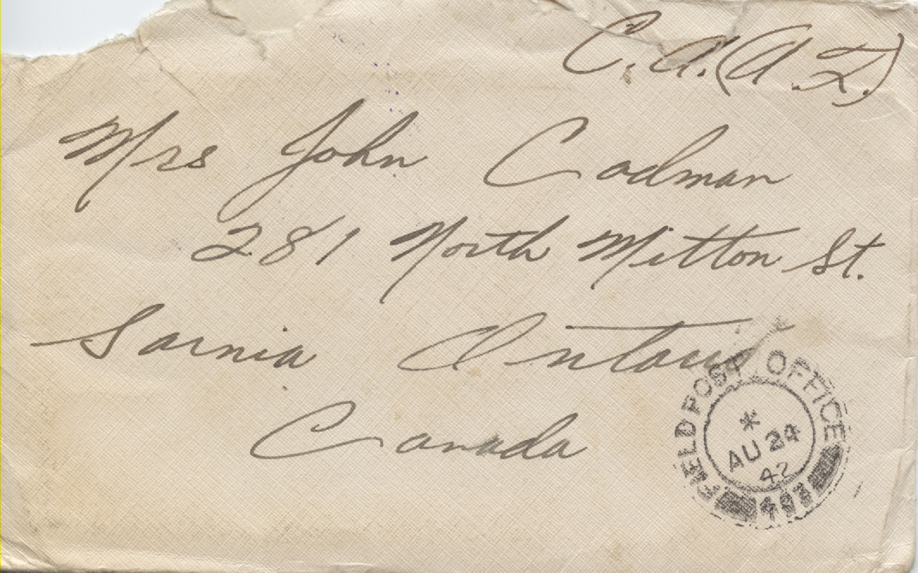 C.A.(A.F.)
Mrs John Codman
281 North Mitton St.
Sarnia Ontario
Canada
FIELD POST OFFICE
*
AU 24
42